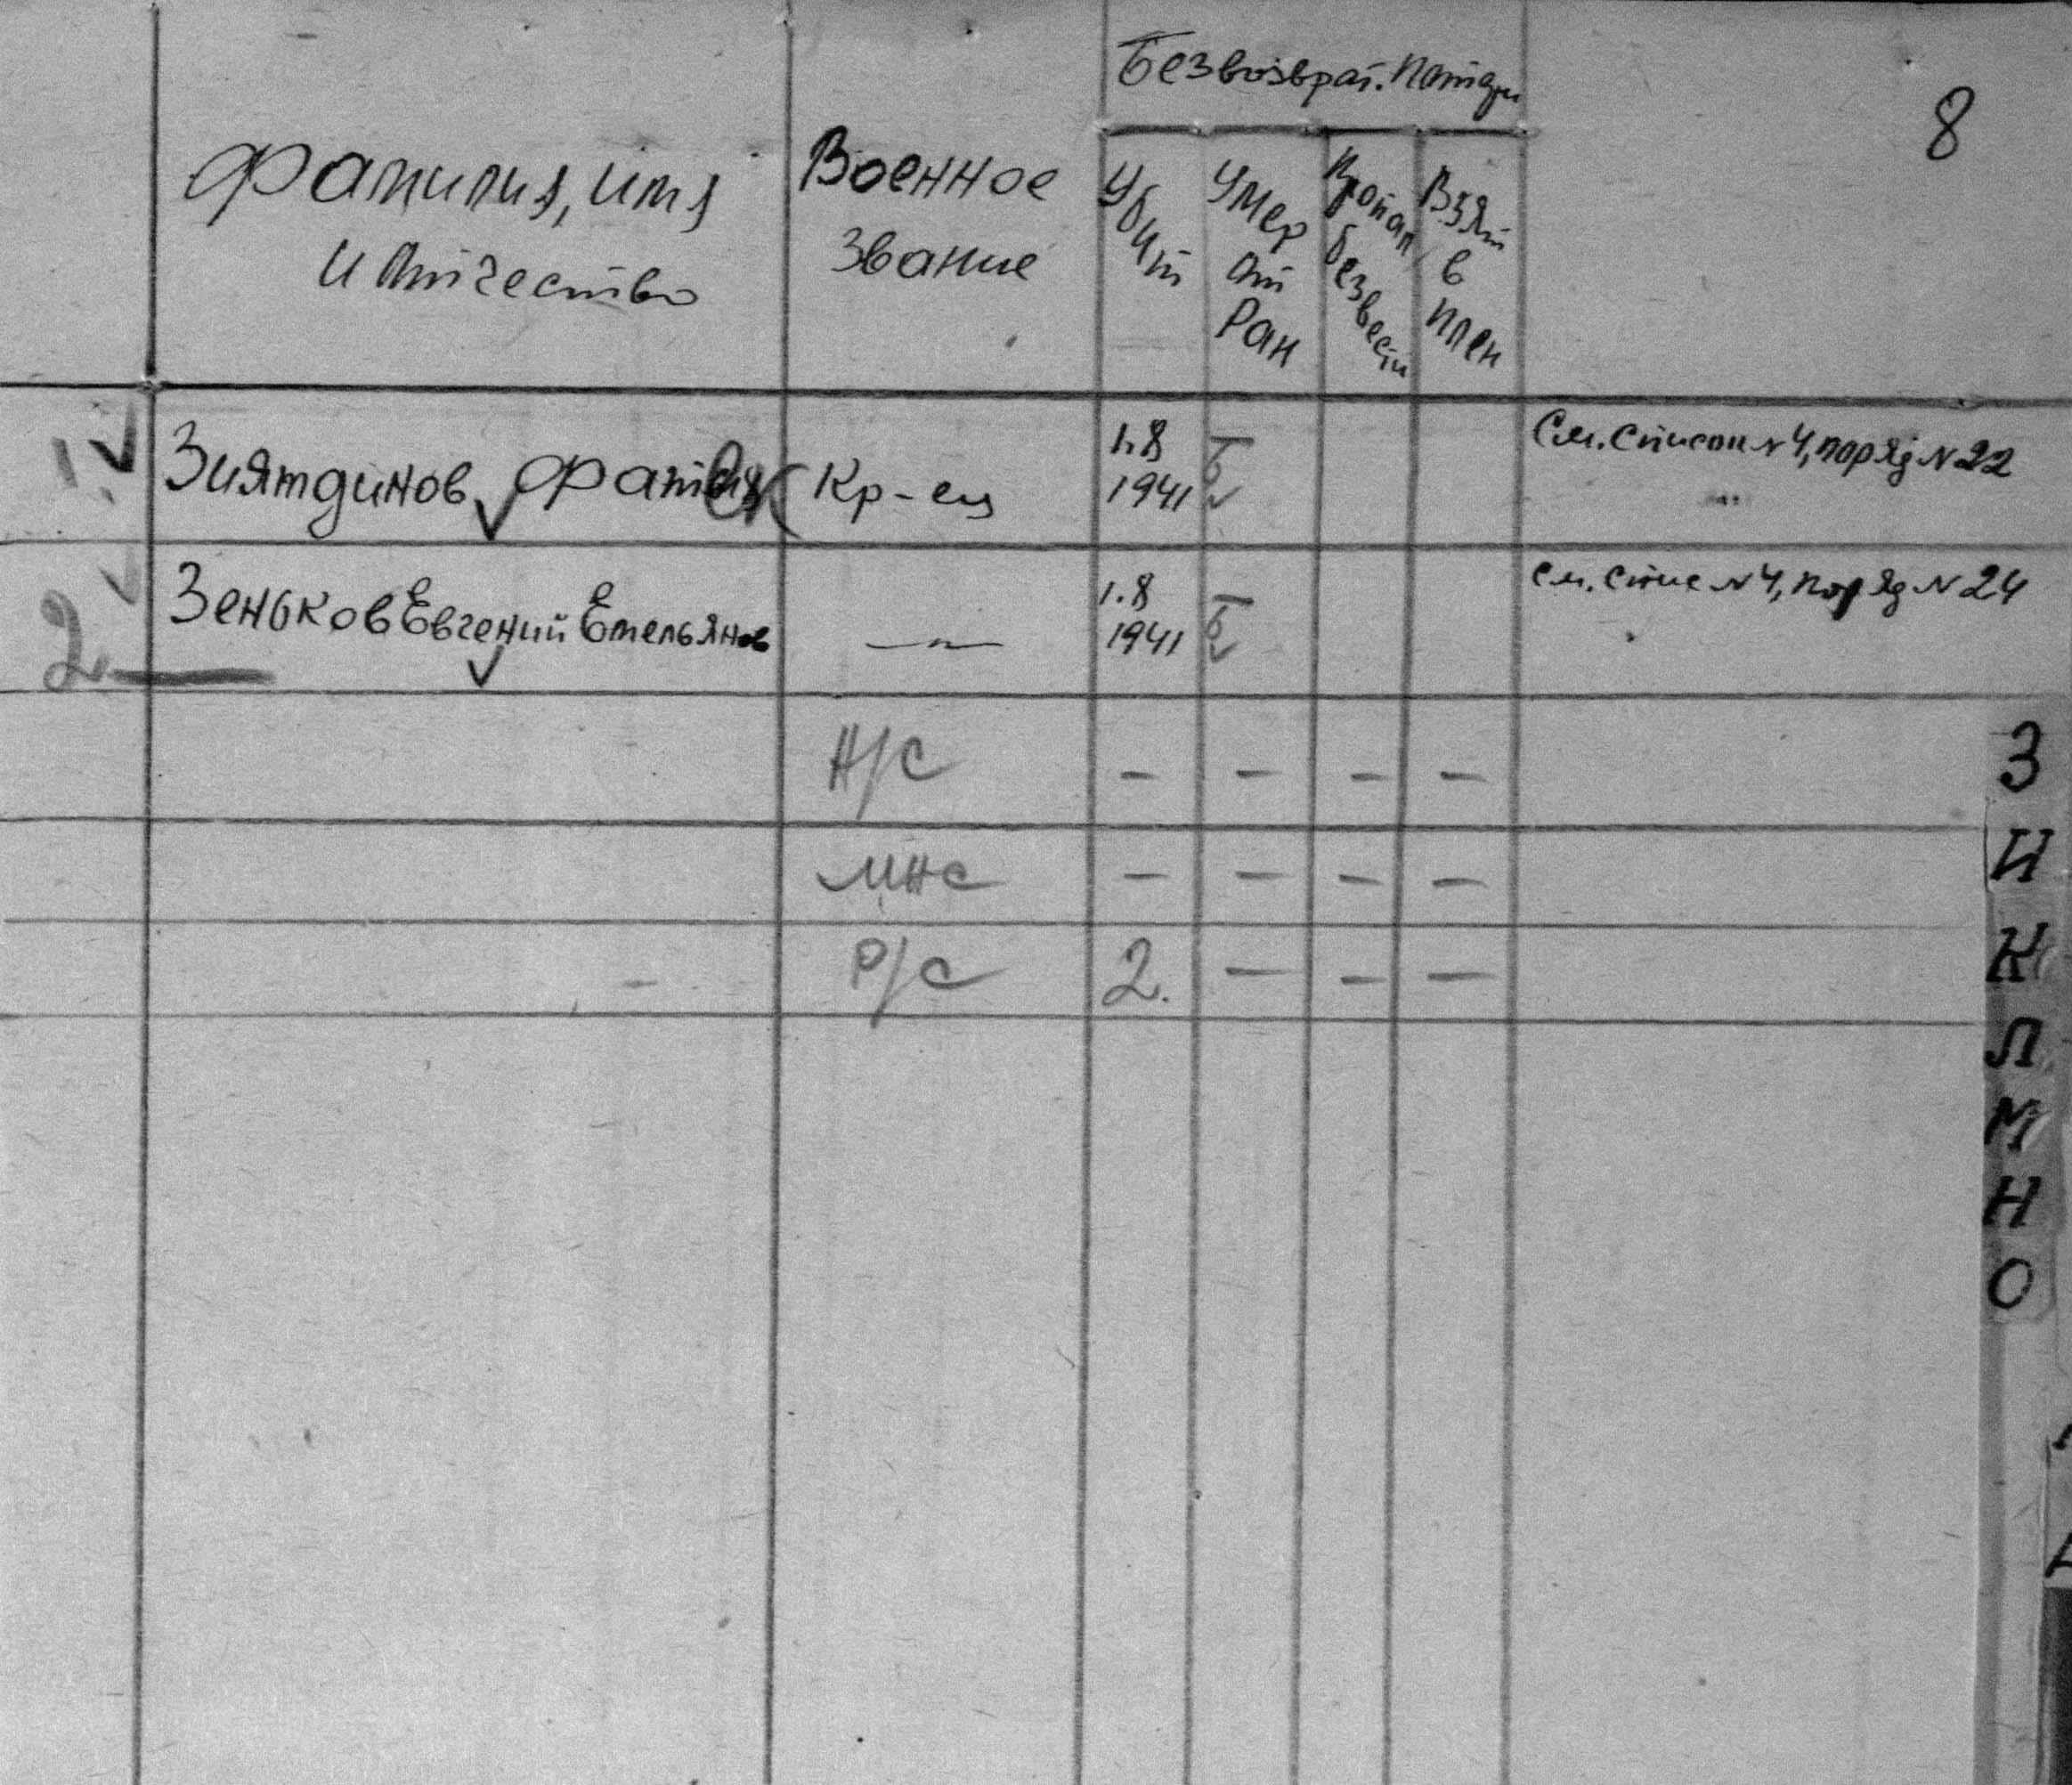 Безвозврат. Потери
8
Фамилия, имя
и отчество
Военное
звание
Убит
Умер
от
Ран
Пропал
безвести
Взят
в
плен
1. Зиятдинов Кр-ец 1.8
1941
См. список №4, поряд №22
2. Зеньков Евгений Емельянов —〃— 1.8
1941
См. спис №4, поряд №24
Н/С — — — —
МНС — — — —
Р/С 2. — — —
З
И
К
Л
М
Н
О